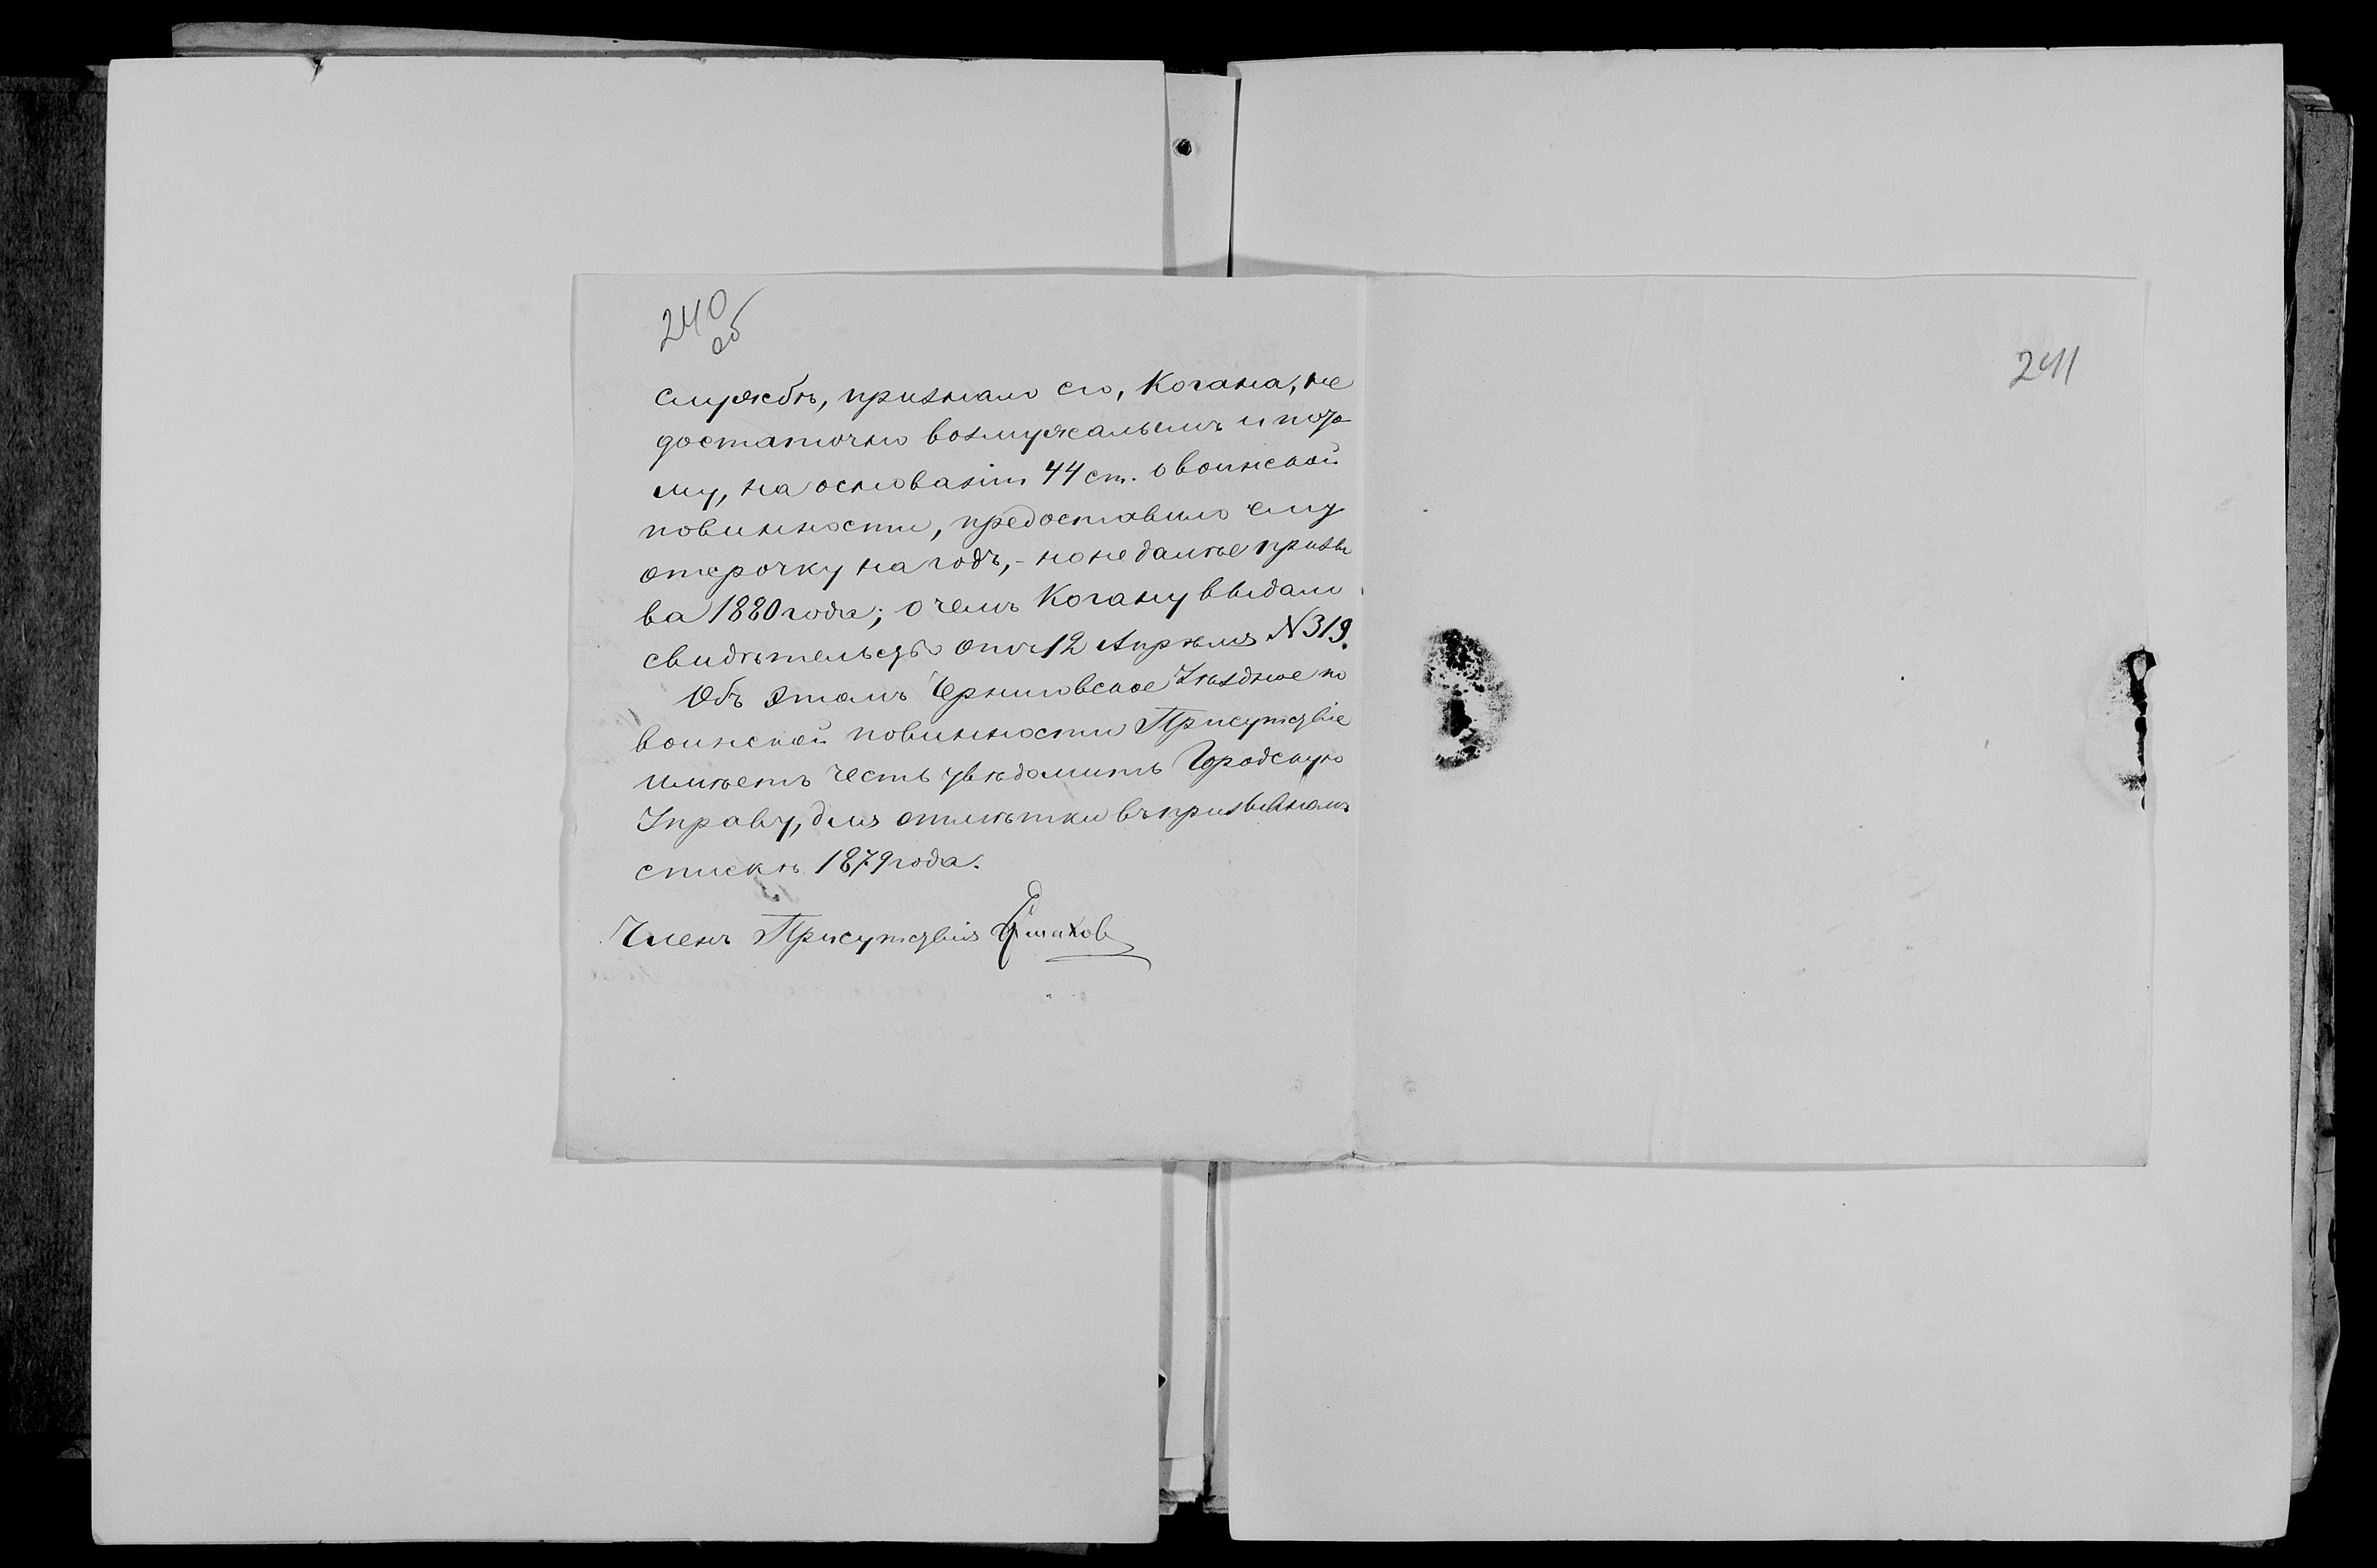 240
об
службѣ, признало его, Когана, не
достаточно возмужалымъ и пото
му, на основаніи 44 ст. о воинской
повинности, предоставило ему
отсрочку на годъ, - но не далѣе призы
ва 1880 года; о чемъ Когану выдано
свидѣтельство отъ 12 Апрѣля N 319.
Объ этомъ Черниговское Уѣздное по
воинской повинности Присутствіе
имѣетъ честь увѣдомить Городскую
Управу, для отмѣтки въ призывномъ
спискѣ 1879 года.
Членъ Присутствія
241